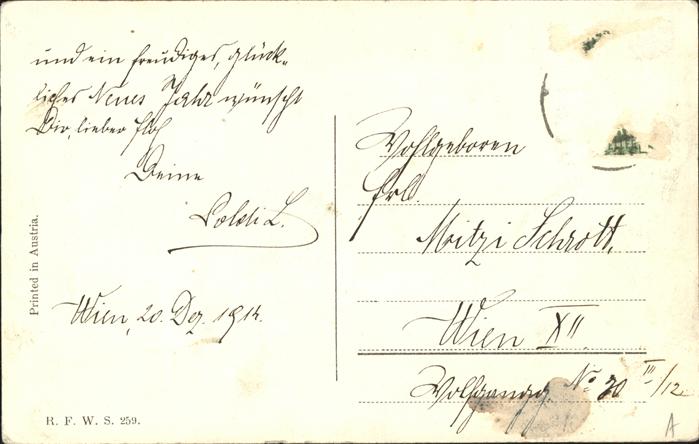 und ein freudiges, glück-
liches Neues Jahr wünscht
Dir, lieber Floh
Deine
Poldi L.
Wien, 20. Dez. 1912.
Printed in Austria.
R. F. W. S. 259.
Wohlgeboren
Frl.
Mitzi Schrott,
Wien XII
Wolfganggz. No 20 III/12.
A